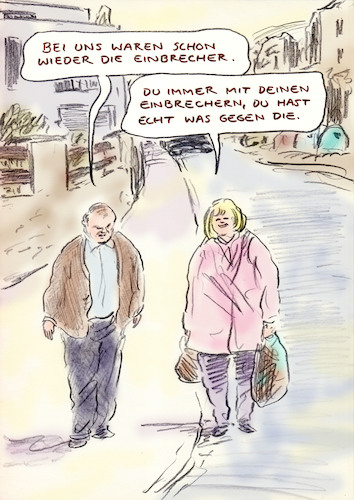 BEI UNS WAREN SCHON
WIEDER DIE EINBRECHER.
DU IMMER MIT DEINEN
EINBRECHERN, DU HAST
ECHT WAS GEGEN DIE.